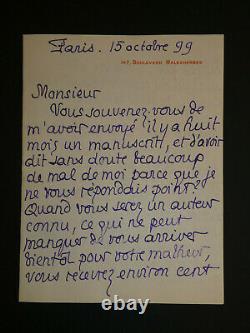 Paris. 15 octobre 99
147, BOULEVARD MALESHERBES
Monsieur
Vous souvenez-vous de
m'avoir envoyé il y a huit
mois un manuscrit, et d'avoir
dit sans doute beaucoup
de mal de moi parce que je
ne vous répondais point?
Quand vous serez un auteur
connu, ce qui ne peut
manquer de vous arriver
bientôt pour votre malheur,
vous recevrez environ cent